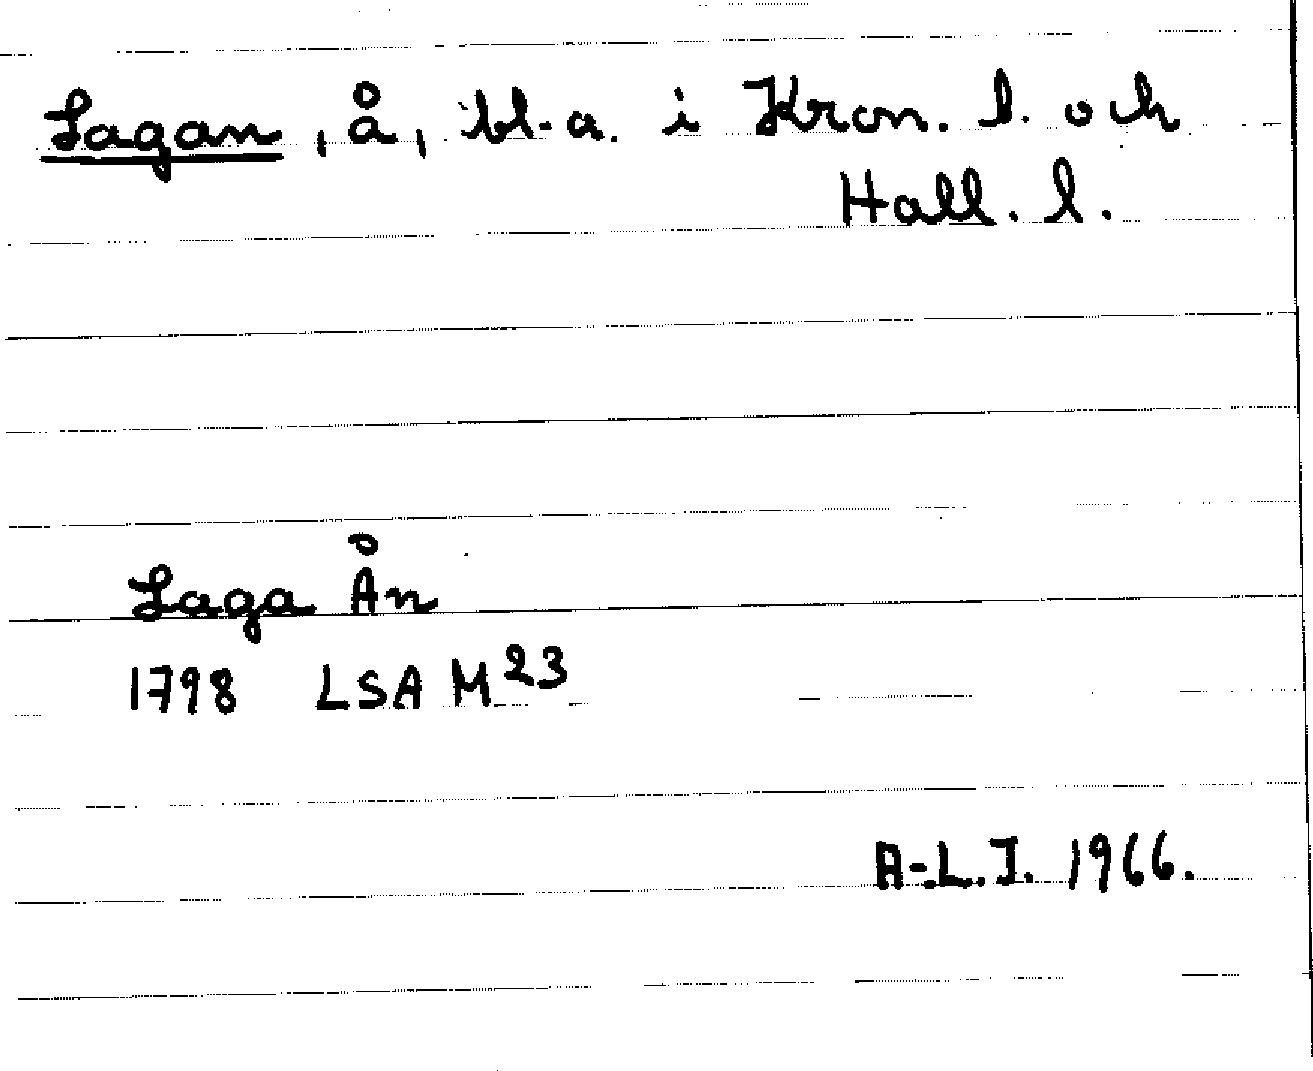 Lagan, å, bl.a. i Kron. l. och
Hall. l.
Laga Ån
1798 LSA M23
A-L.J. 1966.